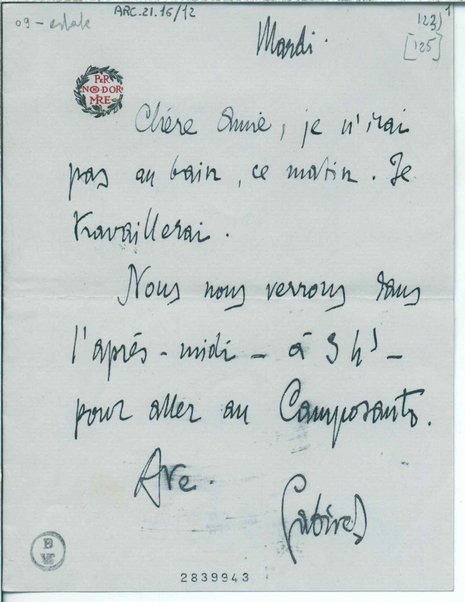 ARC.21.16/12
09-estate
123) 1
[125]
Mardi.
PER
NON DOR
MIRE
Chère Amie, je n'irai
pas au bain, ce matin. Je
travaillerai.
Nous nous verrons dans
l'après-midi - à 3 h -
pour aller au Camposanto.
Ave.
Gabriel
2839943